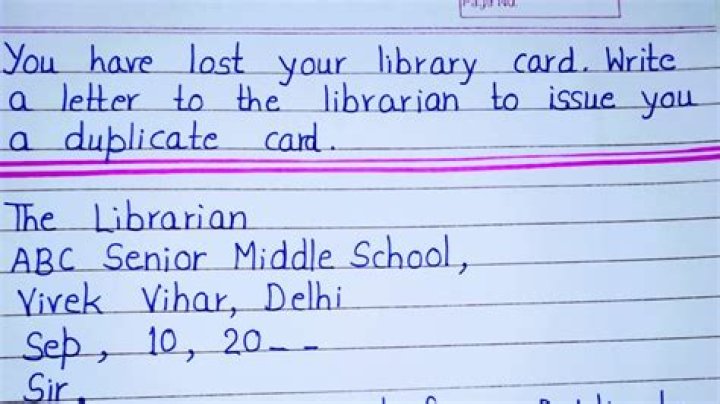 Page No.
You have lost your library card. Write
a letter to the librarian to issue you
a duplicate card.
The Librarian
ABC Senior Middle School,
Vivek Vihar, Delhi
Sep, 10, 20--
Sir,